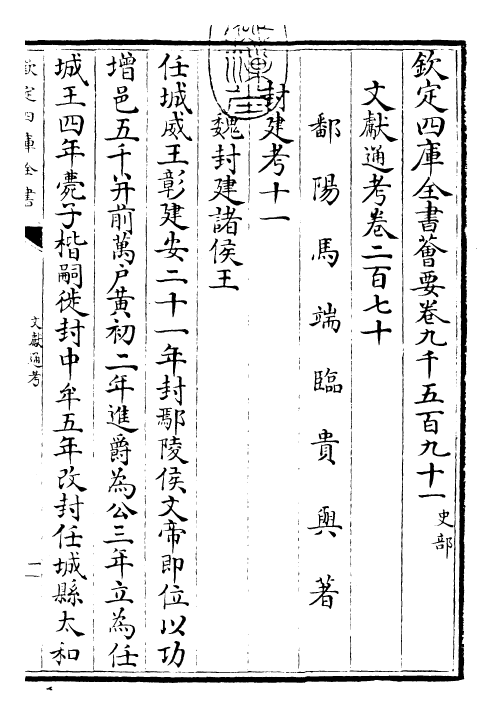 欽定四庫全書薈要卷九千五百九十一 史部
文獻通考卷二百七十
鄱陽馬端臨貴與著
封建考十一
魏封建諸侯王
任城威王彰建安二十一年封鄢陵侯文帝即位以功
增邑五千并前萬戶黃初二年進爵為公三年立為任
城王四年薨子楷嗣徙封中牟五年改封任城縣太和
欽定四庫全書
文獻通考